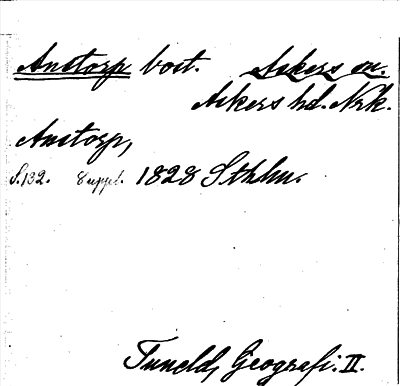 Anstorp bost. Askers sn.
Askers hd. Nrk.
Anstorp,
S. 132. 8 uppl. 1828 Sthlm.
Tuneld, Geografi. II.